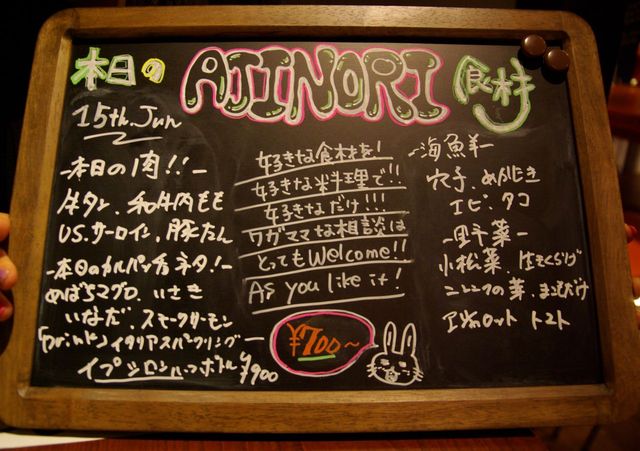 本日の AJINORI 食材
15th. Jun
-本日の肉!!-
牛タン、和牛内もも
US.サーロイン、豚たん
-本日のカルパッチョネタ!-
めばちマグロ、いさき
いなだ、スモークサーモン
「Drink」イタリアスパークリング
イプシロンハーフボトル ¥900
好きな食材を!
好きな料理で!!
好きなだけ!!!
ワガママな相談は
とってもWelcome!!
As you like it!
¥700~
-海魚羊-
穴子、めかじき
エビ、タコ
-野菜-
小松菜、生きくらげ
ニンニクの葉、まつたけ
トマト